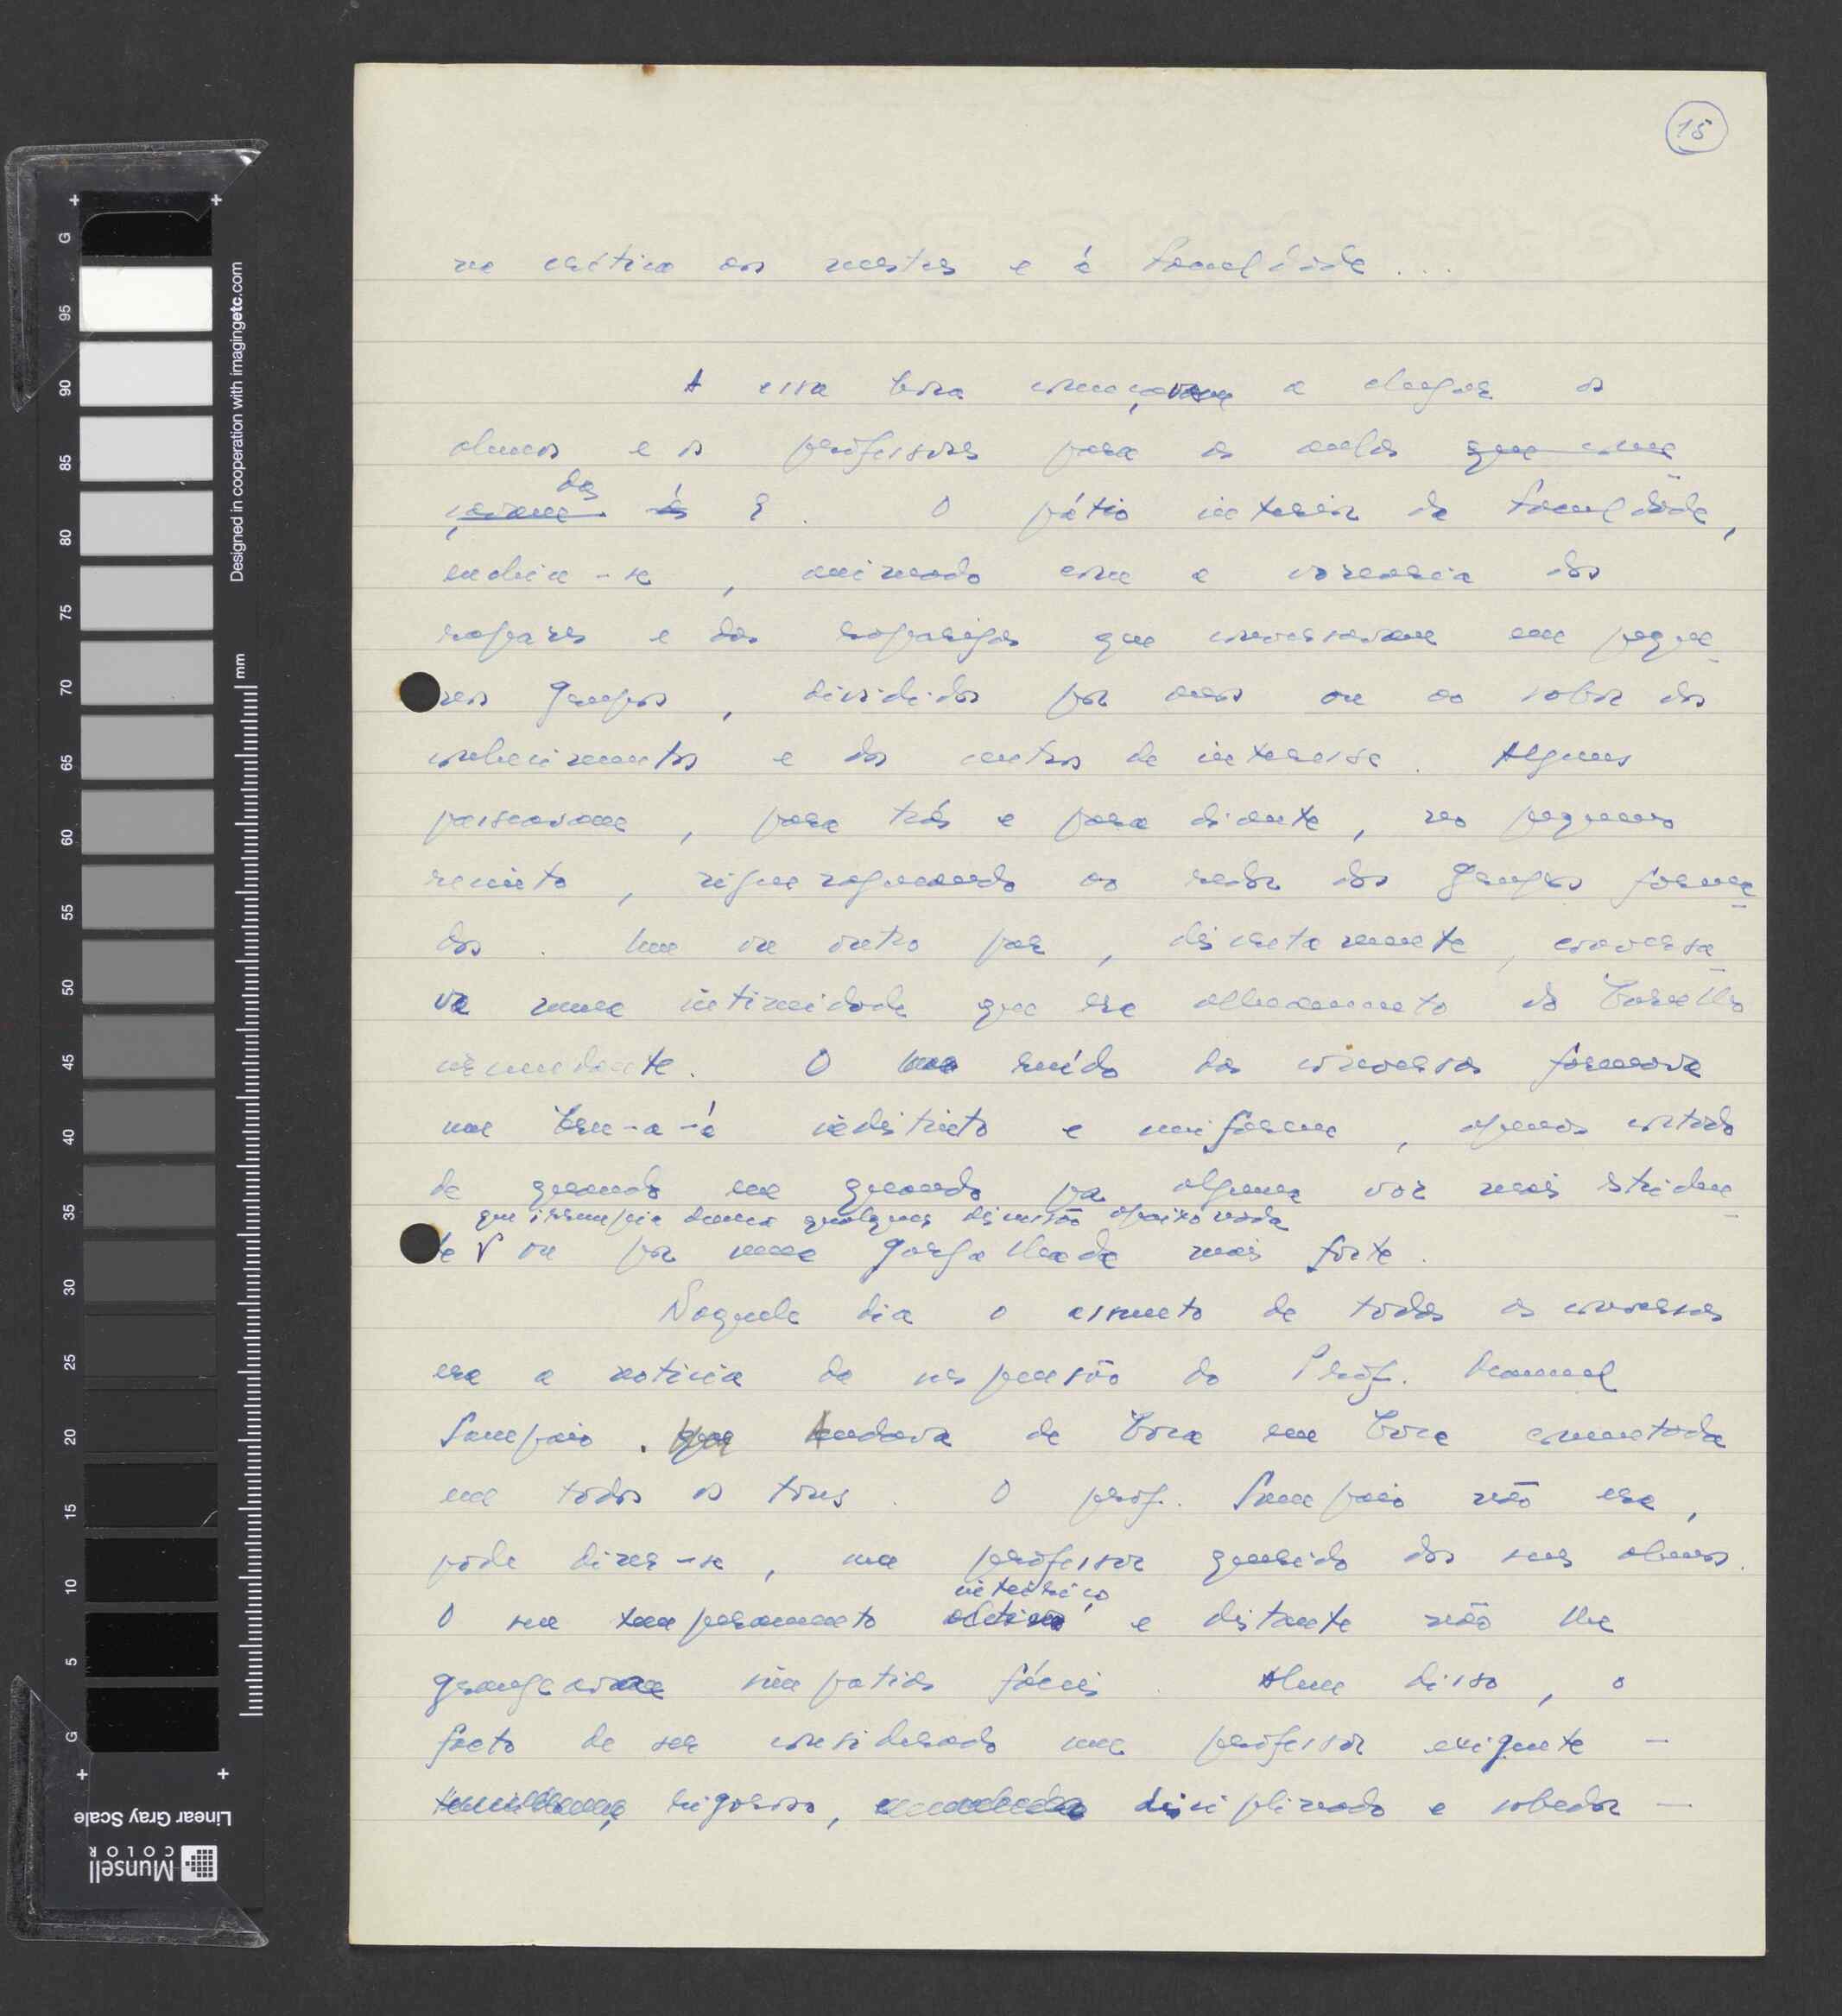 15
na crítica aos mestres e à Faculdade...
A essa hora começavam a chegar os
alunos e os professores para as aulas que come
çavam das às 9. O pátio interior da Faculdade,
enchia-se, animado com a vozearia dos
rapazes e das raparigas que conversavam em peque
nos grupos, divididos por anos ou ao sabor dos
conhecimentos e dos centros de interesse. Alguns
passeavam, para trás e para diante, no pequeno
recinto, ziguezagueando ao redor dos grupos forma
dos. Um ou outro par, discretamente, conversa
va numa intimidade que era alheamento do barulho
circundante. O ruído das conversas formava
um bru-a-á indistinto e uniforme, apenas cortado
de quando em quando por alguma voz mais estriden
que irrompia duma qualquer discussão apaixonada
te ou por uma gargalhada mais forte.
Naquele dia o assunto de todas as conversas
era a notícia da suspensão do Prof. Manuel
Sampaio. Andava de boca em boca comentada
em todos os tons. O prof. Sampaio não era,
pode dizer-se, um professor querido dos seus alunos.
intrínseco
O seu temperamento altivo e distante não lhe
grangeavam simpatias fáceis. Alem disso, o
facto de ser considerado um professor exigente –
rigoroso, disciplinado e sabedor –
Designed in cooperation with imagingetc.com
mm
G 95 90 85 80 75 70 65 60 55 50 45 40 35 30 25 20 15 10 5 G
Linear Gray Scale
Munsell
COLOR